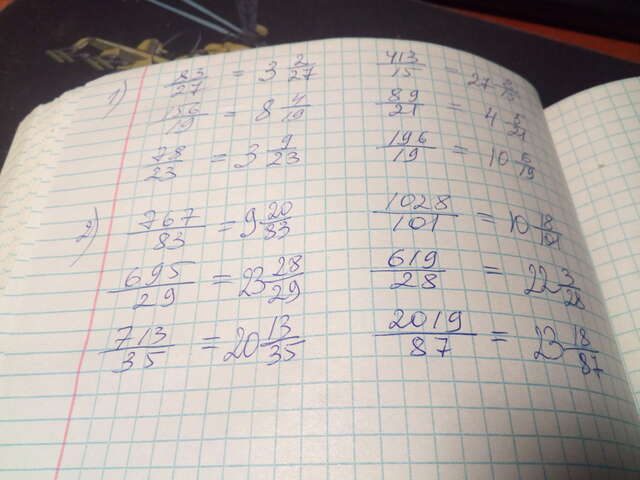 1) 83/27 = 3 2/27 413/15 = 27 8/15
156/19 = 8 4/19 89/21 = 4 5/21
78/23 = 3 9/23 196/19 = 10 6/19
2) 767/83 = 9 20/83 1028/101 = 10 18/101
695/29 = 23 28/29 619/28 = 22 3/28
713/35 = 20 13/35 2019/87 = 23 18/87